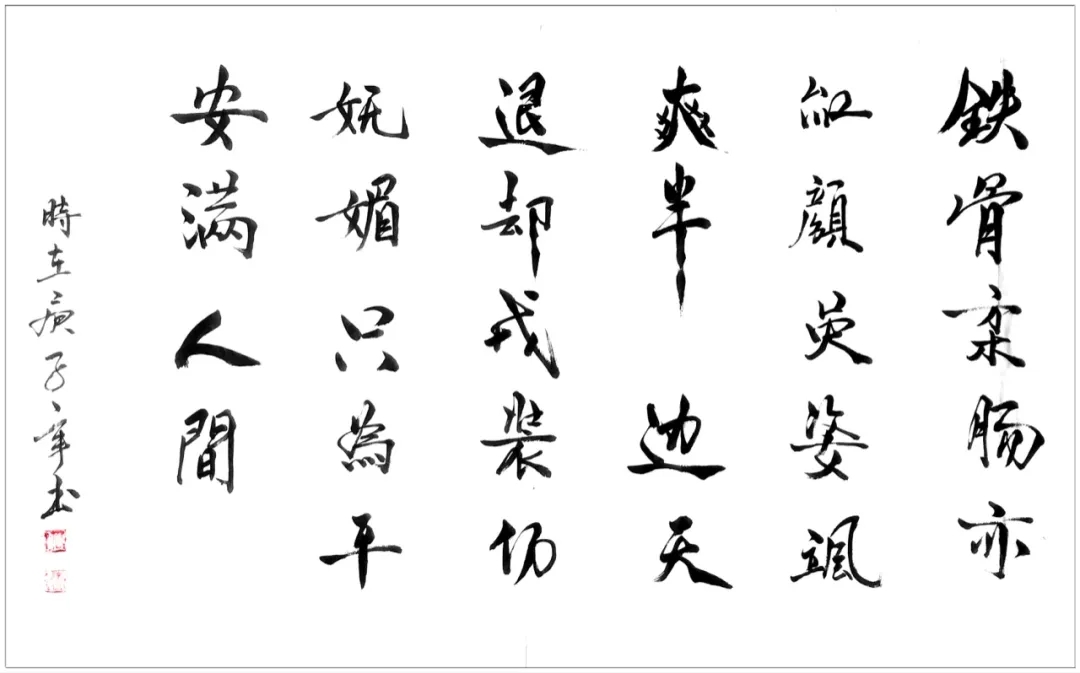 鉄骨柔肠亦
红顔英姿颯
爽半边天
退却戎裝仍
妩媚只為平
安满人間
時在庚子年书